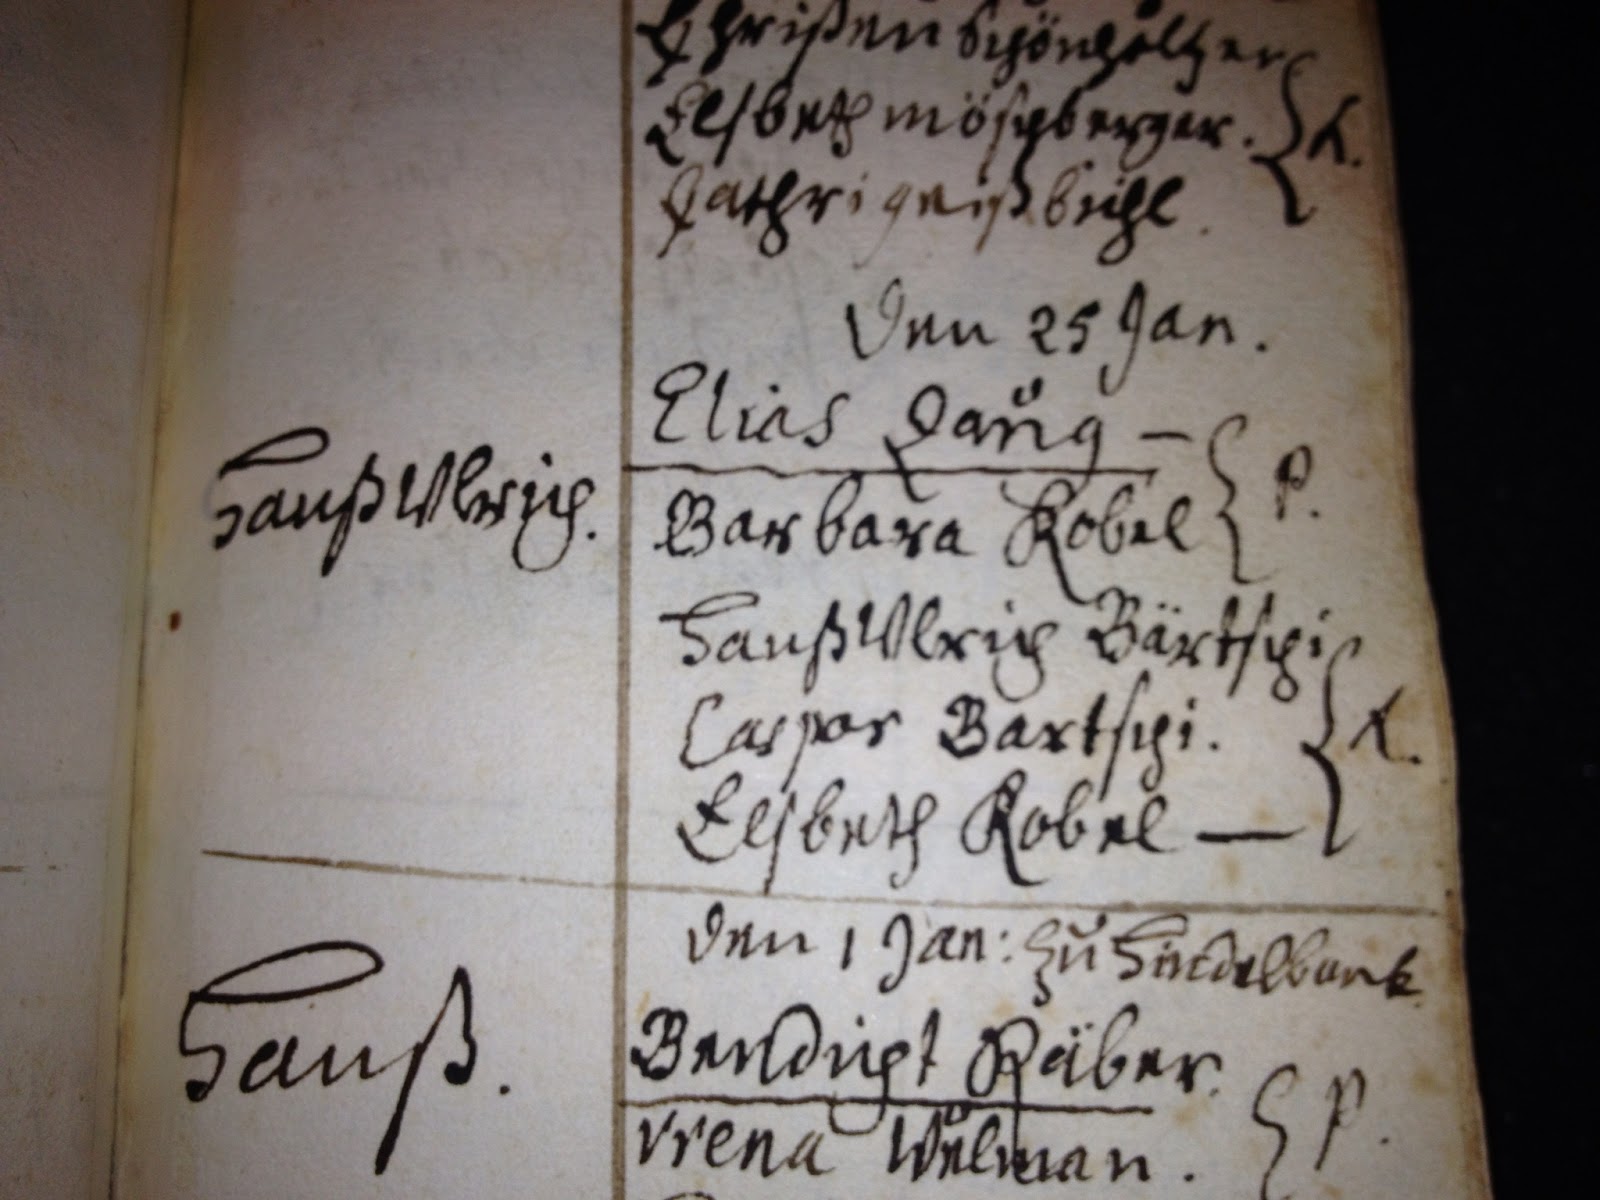 Christen Schönholtzer
Elsbeth Möschberger. } t.
Cathri geißbühl.
Den 25 Jan.
Hanß Ulrich.
Elias Daüg — } p.
Barbara Kobel
Hanß Ulrich Bärtschi
Caspar Bartschi. } t.
Elsbeth Kobel —
Den 1 Jan: Zu Hindelbank
Hanß.
Bendicht Räber. } p.
Vrena Wülman.